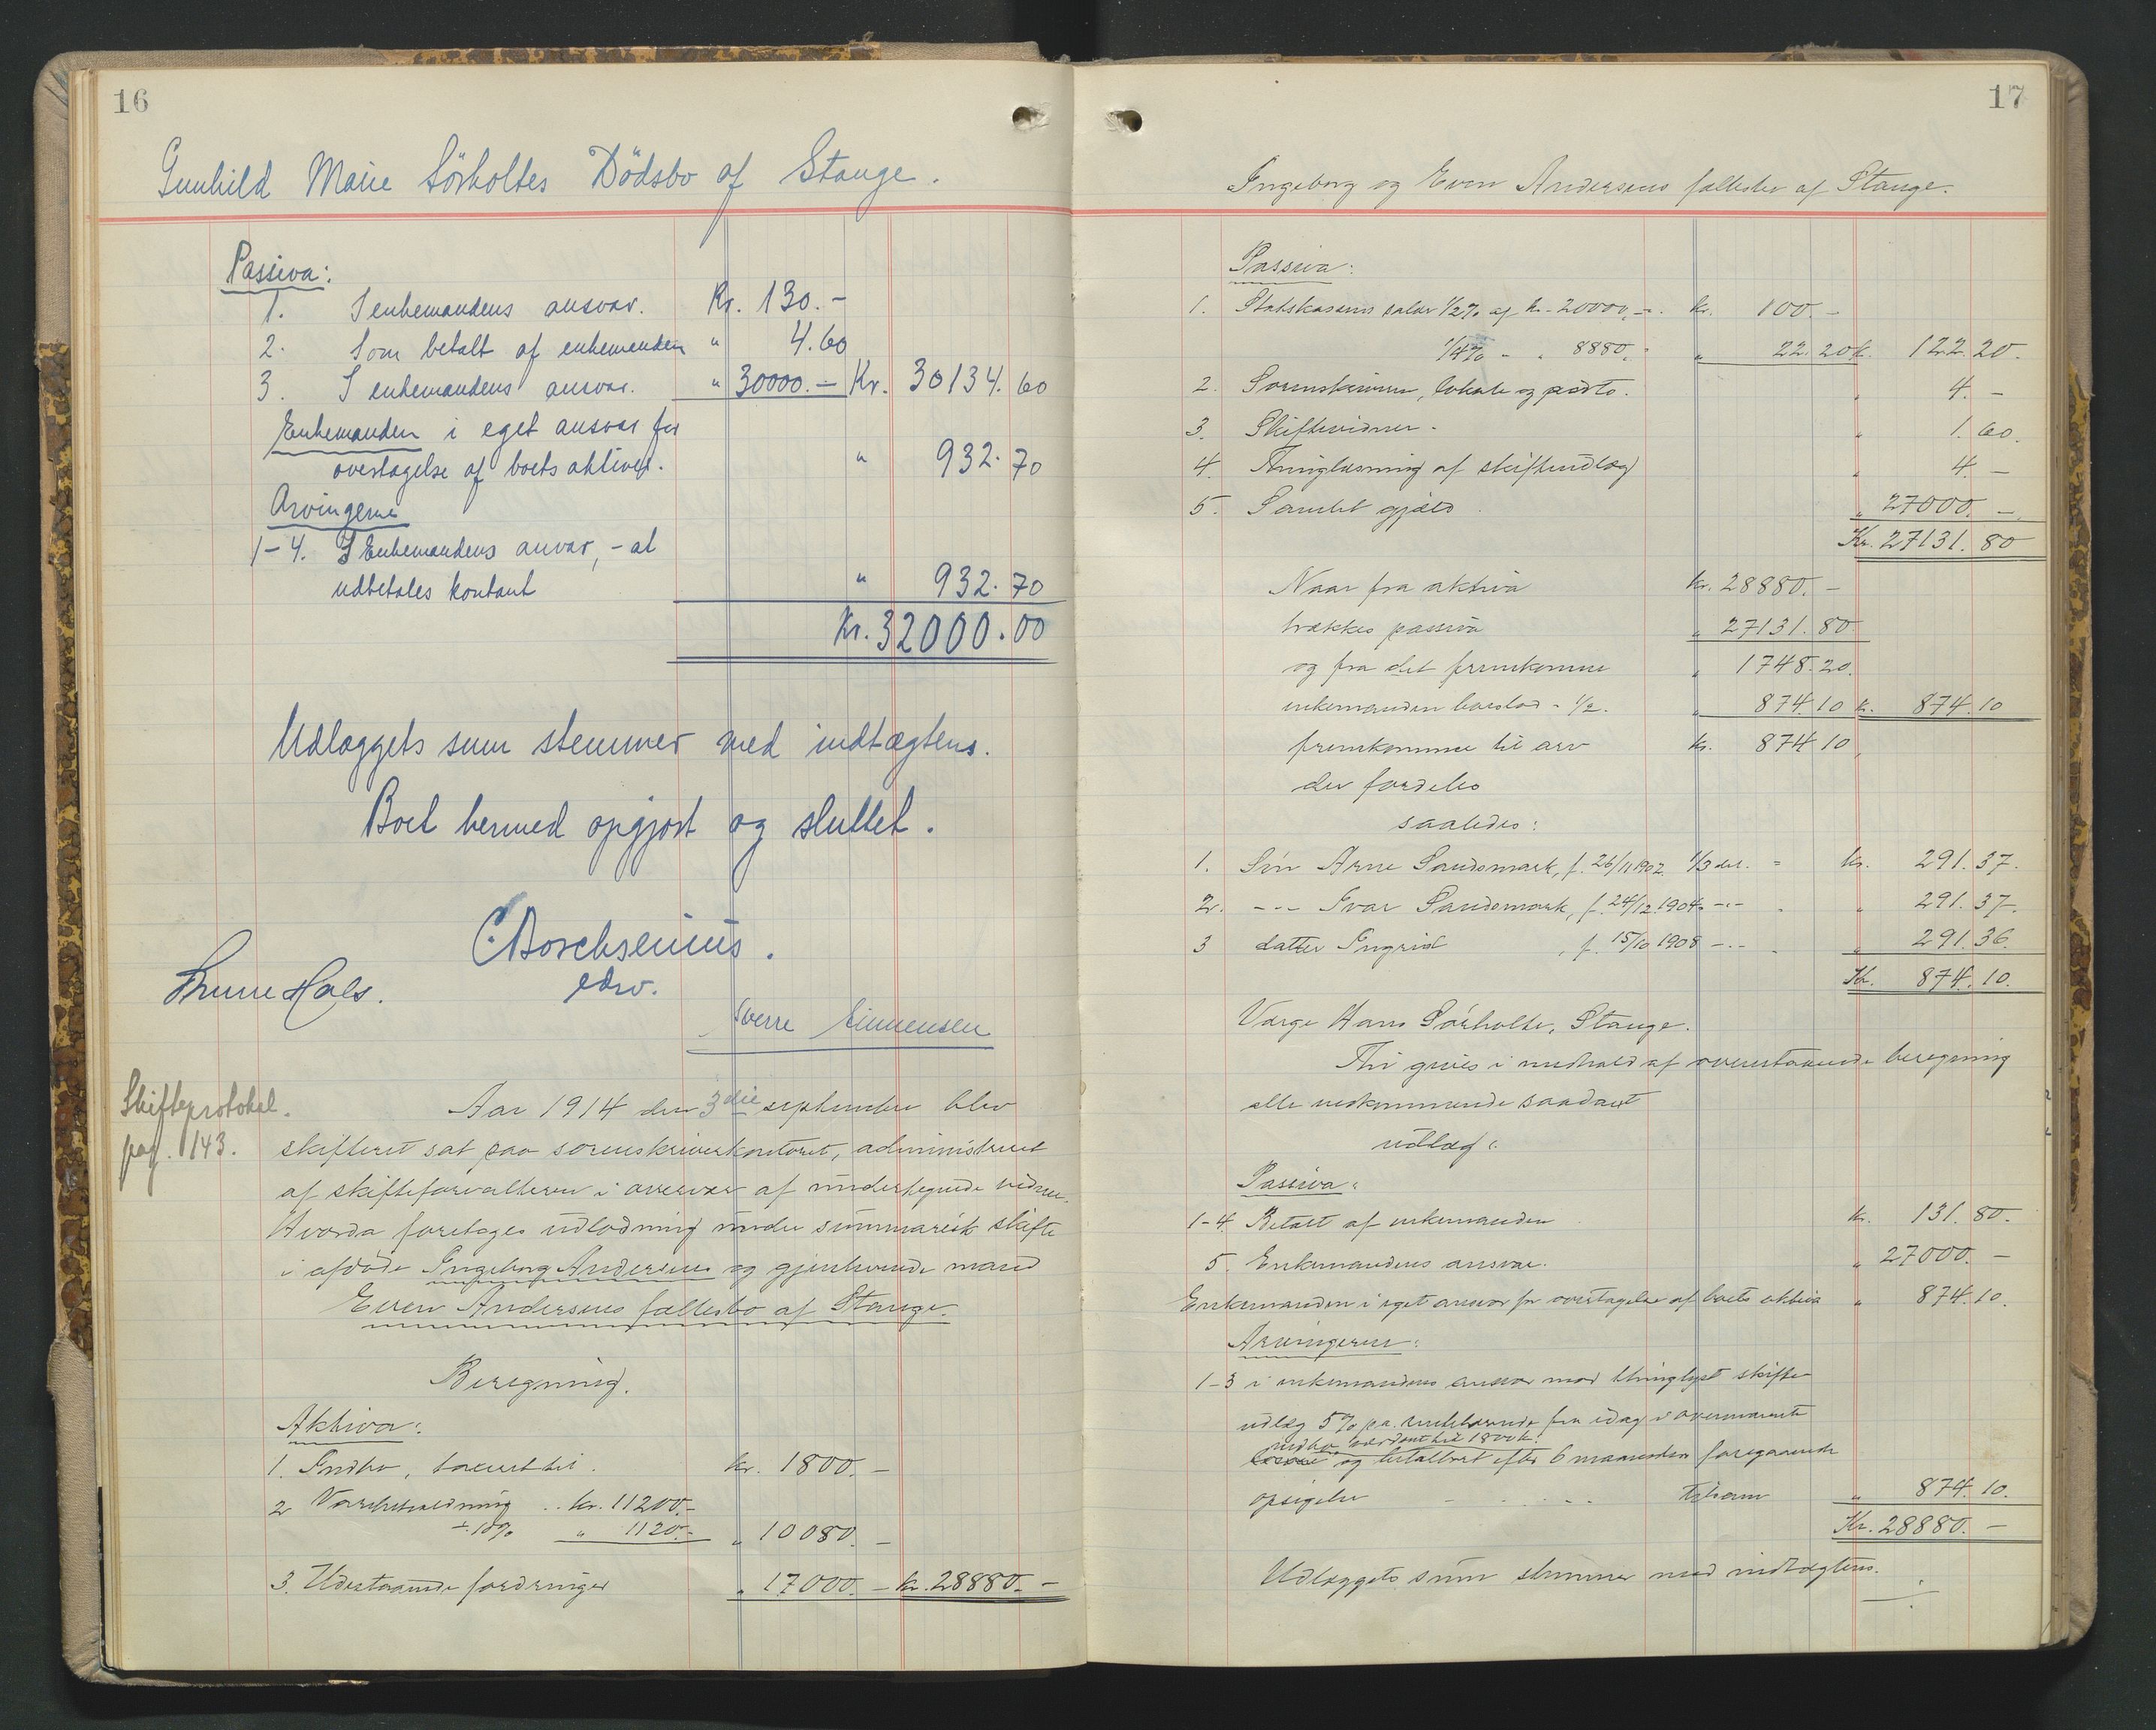 16
Gunhild Marie Sörholtes Dödsbo af Stange.
Passiva:
1. I enkemandens ansvar. Kr. 130.-
2. Som betalt af enkemanden " 4.60
3. I enkemandens ansvar. " 30000.- Kr. 30134.60
Enkemanden i eget ansvar for
overtagelse af boets aktiver. " 932.70
Arvingerne
1-4. I Enkemandens anvar, - at
udbetales kontant " 932.70
Kr. 32000.00
Udlæggets sum stemmer med indtægtens.
Boet hermed opgjort og sluttet.
C. Borchsenius.
edsv.
Thune Hals.
Sverre Simensen
Skifteprotokol.
pag. 143.
Aar 1914 den 3die september blev
skifteret sat paa sorenskriverkontoret, administreret
af skifteforvalteren i overvær af undertegnede vidner.
Hvorda foretages udlodning under summarisk skifte
i afdöde Ingeborg Andersens og gjenlevende mand
Even Andersens fællesbo af Stange.
Beregning.
Aktiva:
1. Indbo, taxeret til. kr. 1800.-
2 Varebeholdning .. kr. 11200.-
÷ 10% " 1120.- " 10080.-
3. Udestaaende fordringer " 17000.- kr. 28880.-
17
Ingeborg og Even Andersens fællesbo af Stange.
Passiva:
1. Statskassens salær 1/2% af kr. 20000.-. kr. 100.-
1/4% - " 8880.- " 22.20 k. 122.20.
2. Sorenskriveren, lokale og porto. " 4.-
3. Skiftevidner. " 1.60.
4. Thinglæsning af skifteudlæg " 4.-
5. Samlet gjæld " 27000.-
Kr. 27131.80
Naar fra aktiva kr. 28880.-
trækkes passiva " 27131.80
og fra det fremkomne " 1748.20.
enkemandens boeslod - 1/2. " 874.10 k. 874.10
fremkommer til arv kr. 874.10
der fordeles
saaledes:
1. Sön Arne Sandsmark, f. 26/11 1902 1/3 del. - kr. 291.37.
2. --- Ivar Sandsmark, f. 24/12 1904 -.- " 291.37.
3 datter Ingrid , f. 15/10 1908 -.- " 291.36.
Kr. 874.10.
Værge Hans Sörholte, Stange.
Thi gives i medhold af ovenstaaende beregning
alle vedkommende saadant
udlæg:
Passiva:
1-4. Betalt af enkemanden kr. 131.80.
5. Enkemandens ansvar. " 27000.-
Enkemanden i eget ansvar for overtagelse af boets aktiva " 874.10.
Arvingerne:
1-3 i enkemandens ansvar mod thinglyst skifte
udlæg 5% p.a. rentebærende fra idag i ovennævnte
indbo værdsat til 1800 k.
og betalbart efter 6 maaneders foregaaende
opsigelse - - - - - tilsam " 874.10.
Kr. 28880.-
Udlæggets sum stemmer med indtægtens.